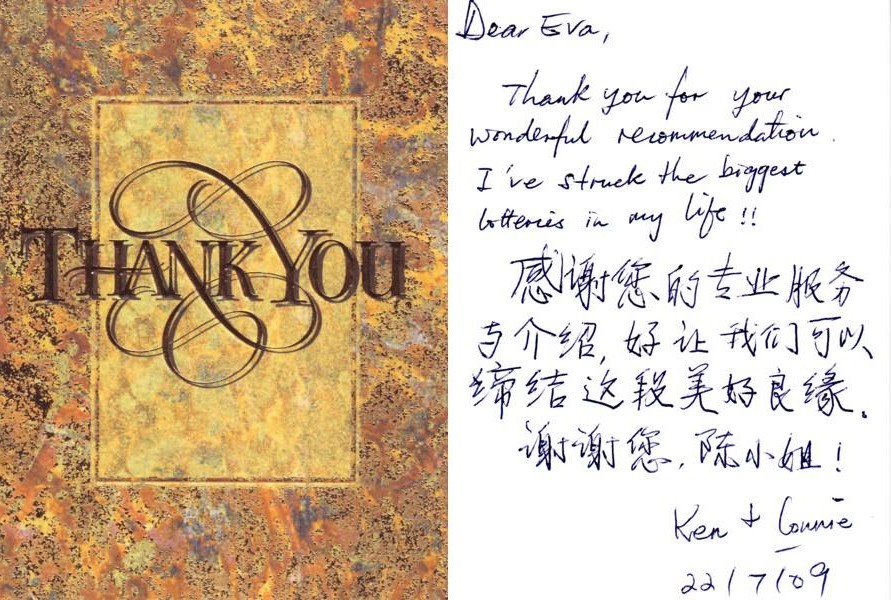 THANK YOU
Dear Eva,
Thank you for your
wonderful recommendation.
I've struck the biggest
lotteries in my life!!
感谢您的专业服务
与介绍,好让我们可以
缔结这段美好良缘。
谢谢您,陈小姐!
Ken + Connie
22/7/09